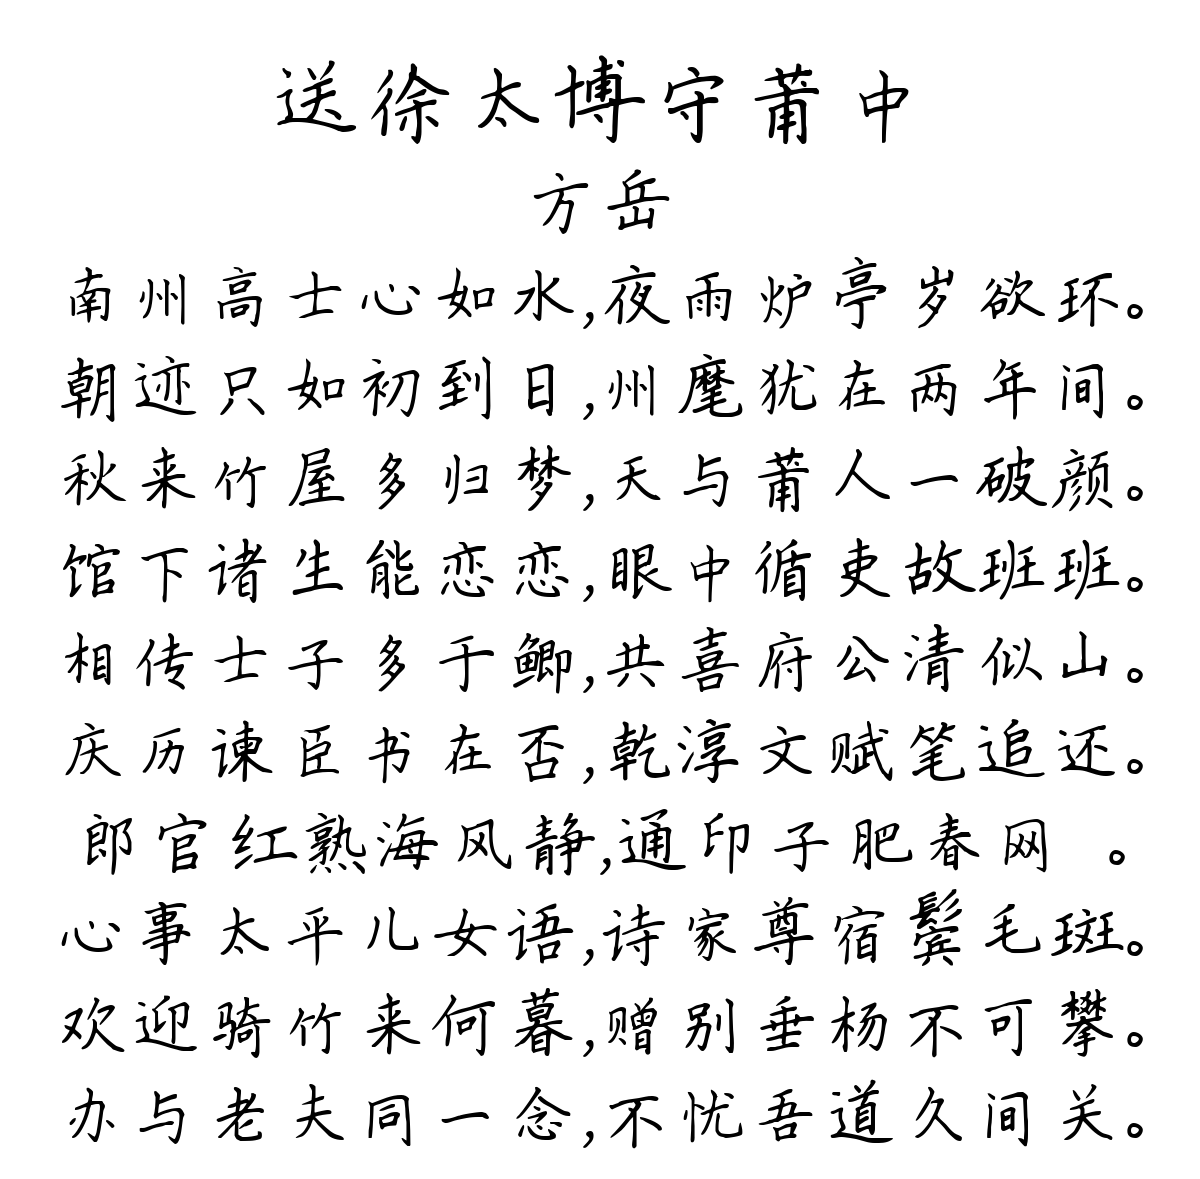 送徐太博守莆中
方岳
南州高士心如水,夜雨炉亭岁欲环。
朝迹只如初到日,州麾犹在两年间。
秋来竹屋多归梦,天与莆人一破颜。
馆下诸生能恋恋,眼中循吏故班班。
相传士子多于鲫,共喜府公清似山。
庆历谏臣书在否,乾淳文赋笔追还。
郎官红熟海风静,通印子肥春网 。
心事太平儿女语,诗家尊宿鬓毛斑。
欢迎骑竹来何暮,赠别垂杨不可攀。
办与老夫同一念,不忧吾道久间关。